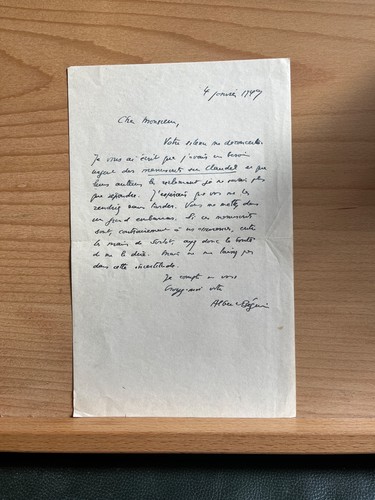 4 janvier 1949
Cher Monsieur,
Votre silence me déconcerte.
Je vous ai écrit que j'avais un besoin
urgent des manuscrits sur Claudel et que
leurs auteurs les réclamant je ne savais plus
que répondre. J'espérais que vous me les
rendriez sans tarder. Vous me mettez dans
un grand embarras. Si ces manuscrits
sont, contrairement à vos , entre
les mains de , ayez donc la bonté
de me le dire. Mais ne me laissez pas
dans cette incertitude.
Je compte sur vous
Envoyez-moi vite
Albert Béguin